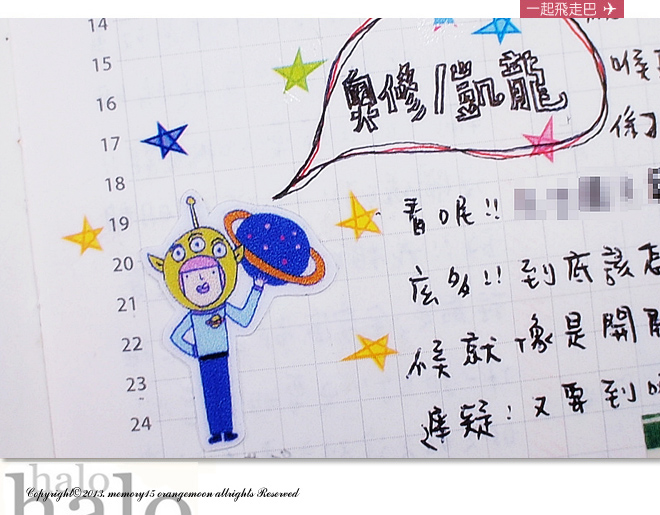 一起飛走巴 ✈
14
15
16
17
18
19
20
21
22
23
24
奧修/凱龍
看呢!!
底多!! 到底該怎
候就像是開
遲疑! 又要到
halo
halo
Copyright© 2013. memory15 orangemoon allrights Reserved